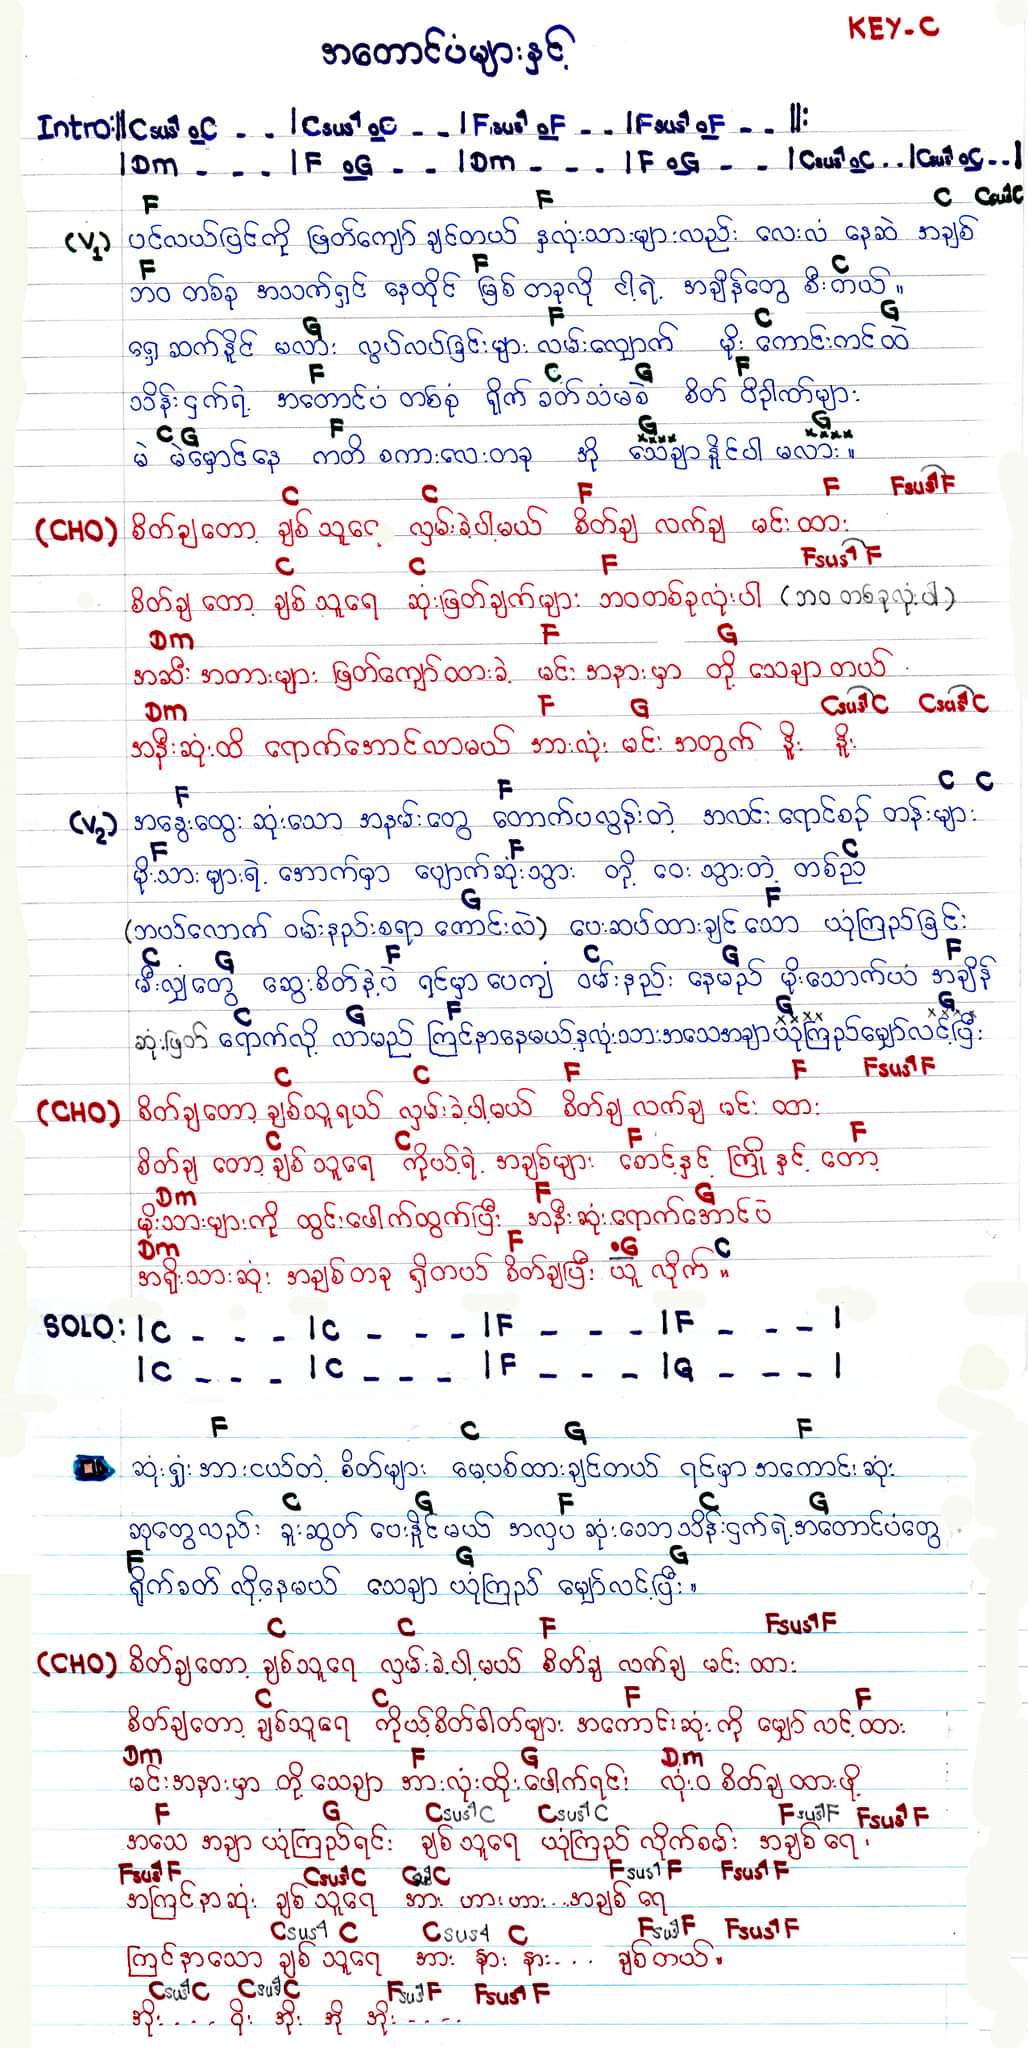 KEY-C
အတောင်ပံများနှင့်
Intro:||Csus4 oC - - |Csus4 oC - - |Fsus4 oF - - |Fsus4 oF - - ||:
|Dm - - - |F oG - - |Dm - - - |F oG - - |Csus4 oC..|Csus4 oC..|
F F C Csus4C
(V1) ပင်လယ်ပြင်ကို ဖြတ်ကျော် ချင်တယ် နှလုံးသားများလည်း လေးလံ နေဆဲ အချစ်
F F C
ဘဝ တစ်ခု အသက်ရှင် နေထိုင် ဖြစ် တခုလို ငါ့ရဲ့ အချိန်တွေ စီးတယ်။
G F C G
ရှေ့ဆက်နိူင် မလား လွပ်လပ်ခြင်းများ လမ်းလျှောက် မိုး ကောင်းကင်ထဲ
F C G F
သိန်းငှက်ရဲ့ အတောင်ပံ တစ်စုံ ရိုက် ခတ်သံမစဲ စိတ် ဝိဥာဏ်များ
C G F G G
xxxx xxxx
မဲ မဲမှောင်နေ ကတိ စကားလေးတခု အို သေချာနိူင်ပါ မလား။
C C F F Fsus4F
(CHO) စိတ်ချတော့ ချစ်သူရေ လှမ်းခဲ့ပါ့မယ် စိတ်ချ လက်ချ မင်းထား
C C F Fsus4 F
စိတ်ချ တော့ ချစ်သူရေ ဆုံးဖြတ်ချက်များ ဘဝတစ်ခုလုံးပါ (ဘဝတစ်ခုလုံးပါ)
Dm F G
အဆီး အတားများ ဖြတ်ကျော်ထားခဲ့ မင်းအနားမှာ တို့ သေချာတယ်
Dm F G Csus4C Csus4C
အနီးဆုံးထိ ရောက်အောင်လာမယ် အားလုံး မင်းအတွက် နိူး နိူး
F F C C
(V2) အနွေးထွေး ဆုံးသော အနမ်းတွေ တောက်ပလွန်းတဲ့ အလင်းရောင်စဉ် တန်းများ
F F C
မိုးသားများရဲ့ အောက်မှာ ပျောက်ဆုံးသွား တို့ ဝေးသွားတဲ့ တစ်ည
G F
(ဘယ်လောက် ဝမ်းနည်းစရာ ကောင်းလဲ) ပေးဆပ်ထားချင်သော ယုံကြည်ခြင်း
C G F C G F
မီးလျှံတွေ ဆွေးစိတ်နဲ့ပဲ ရင်မှာပေကျံ ဝမ်းနည်း နေမည် မိုးသောက်ယံ အချိန်
C G F G G
xxxx xxxx
ဆုံးဖြတ် ရောက်လို့ လာမည် ကြင်နာနေမယ့်နှလုံးသားအသေအချာယုံကြည်မျှော်လင့်ပြီး
C C F F Fsus4F
(CHO) စိတ်ချတော့ ချစ်သူရယ် လှမ်းခဲ့ပါ့မယ် စိတ်ချ လက်ချ မင်း ထား
C C F F
စိတ်ချ တော့ ချစ်သူရေ ကိုယ့်ရဲ့ အချစ်များ စောင့်နှင့် ကြိုနှင့် တော့
Dm F G
မိုးသားများကို ထွင်းဖေါက်ထွက်ပြီး အနီးဆုံးရောက်အောင်ပဲ
Dm F .G C
အရိုးသားဆုံး အချစ်တခု ရှိတယ် စိတ်ချပြီး ယူ လိုက်။
SOLO: |C - - - |C - - - |F - - - |F - - - |
|C - - - |C - - - |F - - - |G - - - |
F C G F
ဆုံးရှုံးအားငယ်တဲ့ စိတ်များ မေ့ပစ်ထားချင်တယ် ရင်မှာအကောင်းဆုံး
C G F C G
ဆုတွေလည်း ခူးဆွတ် ပေးနိူင်မယ် အလှပ ဆုံးသော သိန်းငှက်ရဲ့အတောင်ပံတွေ
F G G
ရိုက်ခတ် လို့နေမယ် သေချာ ယုံကြည် မျှော်လင့်ပြီး။
C C F Fsus4F
(CHO) စိတ်ချတော့ ချစ်သူရေ လှမ်းခဲ့ပါ့မယ် စိတ်ချ လက်ချ မင်းထား
C C F F
စိတ်ချတော့ ချစ်သူရေ ကိုယ့်စိတ်ဓါတ်များ အကောင်းဆုံးကို မျှော်လင့်ထား
Dm F G Dm
မင်းအနားမှာ တို့သေချာ အားလုံးထိုးဖေါက်ရင်း လုံးဝ စိတ်ချထားဖို့
F G Csus4C Csus4C Fsus4F Fsus4F
အသေ အချာ ယုံကြည်ရင်း ချစ်သူရေ ယုံကြည် လိုက်စမ်း အချစ်ရေ၊
Fsus4F Csus4C Csus4C Fsus4F Fsus4F
အကြင်နာဆုံး ချစ်သူရေ အား ဟားဟား...အချစ် ရေ
Csus4 C Csus4 C Fsus4F Fsus4F
ကြင်နာသော ချစ်သူရေ အား နား နား.... ချစ်တယ်။
Csus4C Csus4C Fsus4F Fsus4F
အိုး.... ဝိုး အိုး အို အိုး....